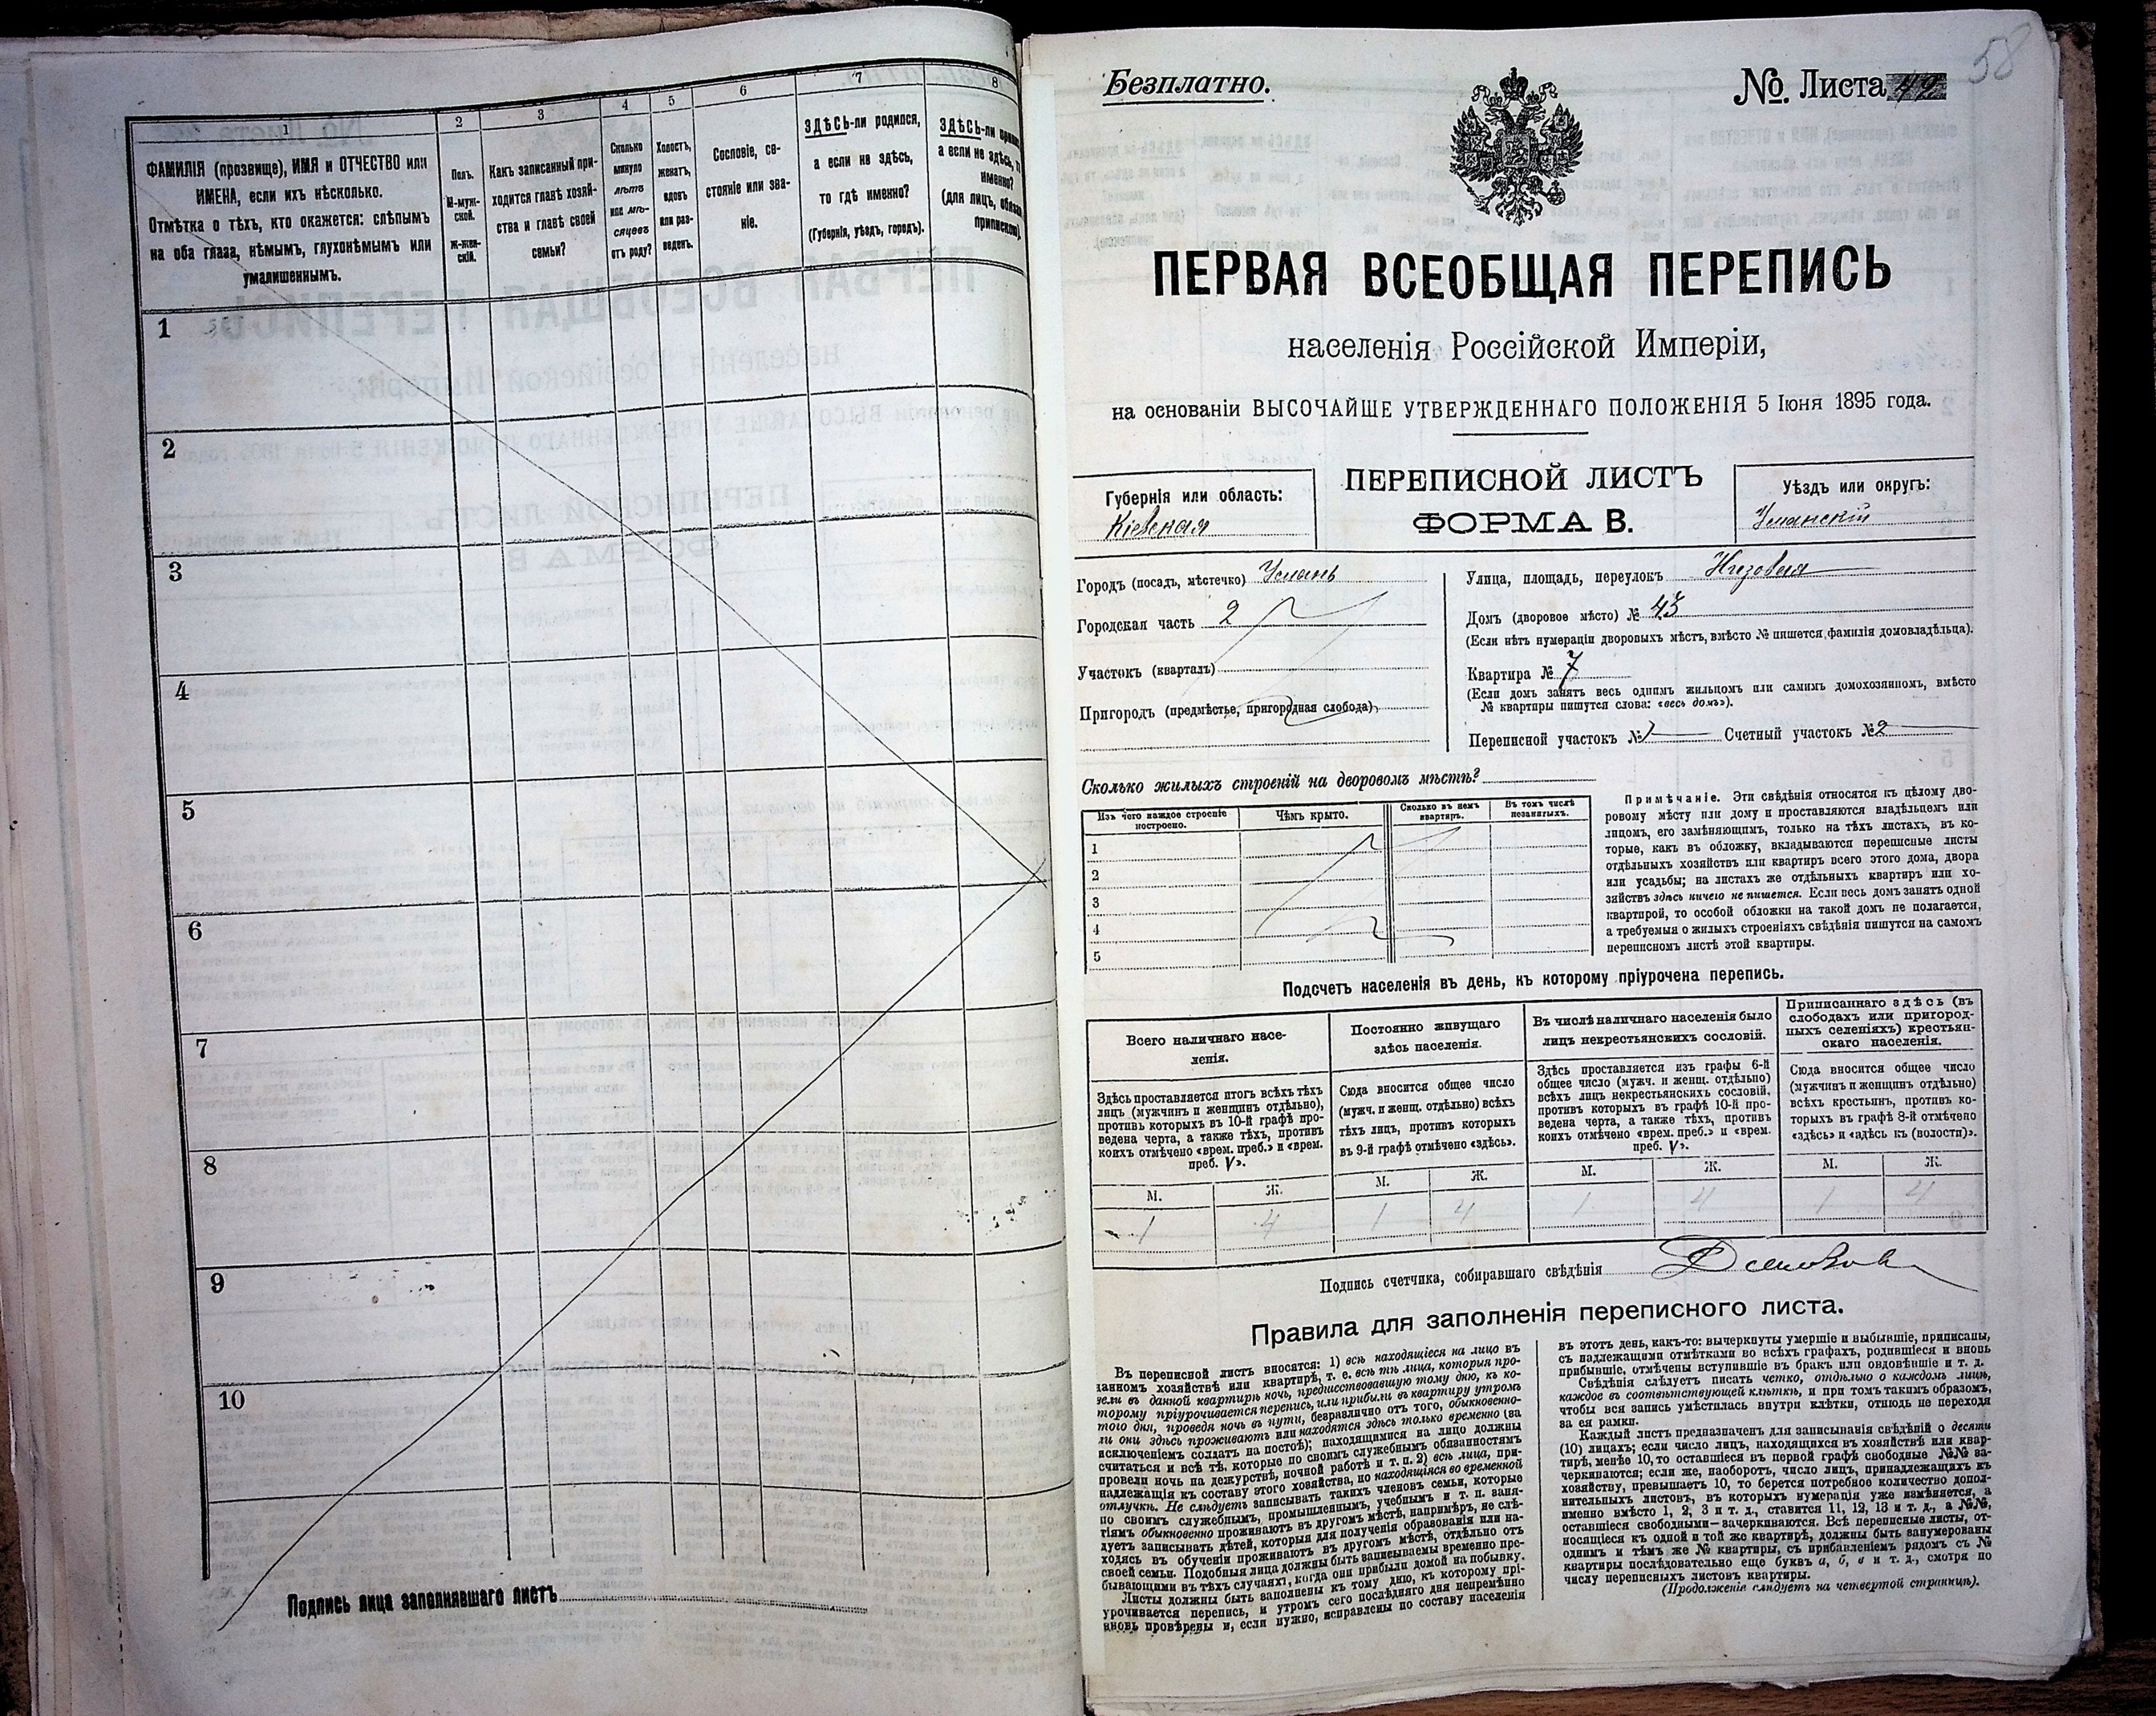 1
ФАМИЛІЯ (прозвище), ИМЯ и ОТЧЕСТВО или
ИМЕНА, если ихъ нѣсколько.
Отмѣтка о тѣхъ, кто окажется: слѣпымъ
на оба глаза, нѣмымъ, глухонѣмымъ или
умалишеннымъ.
2
Полъ.
М-муж-
ской.
Ж-жен-
скій.
3
Какъ записанный при-
ходится главѣ хозяй-
ства и главѣ своей
семьи?
4
Сколько
минуло
лѣтъ
или мѣ-
сяцевъ
отъ роду?
5
Холостъ,
женатъ,
вдовъ
или раз-
веденъ.
6
Сословіе, со-
стояніе или зва-
ніе.
7
ЗДѢСЬ-ли родился,
а если не здѣсь,
то гдѣ именно?
(Губернія, уѣздъ, городъ).
8
ЗДѢСЬ-ли
а если не здѣсь,
именно?
(для лицъ,
1
2
3
4
5
6
7
8
9
10
Подпись лица заполнявшаго листъ
58
Безплатно.
№ Листа 42
ПЕРВАЯ ВСЕОБЩАЯ ПЕРЕПИСЬ
населенія Россійской Имперіи,
на основаніи ВЫСОЧАЙШЕ УТВЕРЖДЕННАГО ПОЛОЖЕНІЯ 5 Іюня 1895 года.
Губернія или область:
Кіевская
ПЕРЕПИСНОЙ ЛИСТЪ
ФОРМА В.
Уѣздъ или округъ:
Уманскій
Городъ (посадъ, мѣстечко) Умань
Городская часть 2
Участокъ (кварталъ)
Пригородъ (предмѣстье, пригородная слобода)
Улица, площадь, переулокъ Низовая
Домъ (дворовое мѣсто) № 43
(Если нѣтъ нумераціи дворовыхъ мѣстъ, вмѣсто № пишется фамилія домовладѣльца).
Квартира № 7
(Если домъ занятъ весь однимъ жильцомъ или самимъ домохозяиномъ, вмѣсто
№ квартиры пишутся слова: «весь домъ»).
Переписной участокъ № 1 Счетный участокъ № 2
Сколько жилыхъ строеній на дворовомъ мѣстѣ?
Изъ чего каждое строеніе
построено.
Чѣмъ крыто.
Сколько въ немъ
квартиръ.
Въ томъ числѣ
незанятыхъ.
1
2
3
4
5
Примѣчаніе. Эти свѣдѣнія относятся къ цѣлому дво-
ровому мѣсту или дому и проставляются владѣльцемъ или
лицомъ, его замѣняющимъ, только на тѣхъ листахъ, въ ко-
торые, какъ въ обложку, вкладываются переписные листы
отдѣльныхъ хозяйствъ или квартиръ всего этого дома, двора
или усадьбы; на листахъ же отдѣльныхъ квартиръ или хо-
зяйствъ здѣсь ничего не пишется. Если весь домъ занятъ одной
квартирой, то особой обложки на такой домъ не полагается,
а требуемыя о жилыхъ строеніяхъ свѣдѣнія пишутся на самомъ
переписномъ листѣ этой квартиры.
Подсчетъ населенія въ день, къ которому пріурочена перепись.
Всего наличнаго насе-
ленія.
Здѣсь проставляется итогъ всѣхъ тѣхъ
лицъ (мужчинъ и женщинъ отдѣльно),
противъ которыхъ въ 10-й графѣ про-
ведена черта, а также тѣхъ, противъ
коихъ отмѣчено «врем. преб.» и «врем.
преб. V».
М. Ж.
1 4
Постоянно живущаго
здѣсь населенія.
Сюда вносится общее число
(мужч. и женщ. отдѣльно) всѣхъ
тѣхъ лицъ, противъ которыхъ
въ 9-й графѣ отмѣчено «здѣсь».
М. Ж.
1 4
Въ числѣ наличнаго населенія было
лицъ некрестьянскихъ сословій.
Здѣсь проставляется изъ графы 6-й
общее число (мужч. и женщ. отдѣльно)
всѣхъ лицъ некрестьянскихъ сословій,
противъ которыхъ въ графѣ 10-й про-
ведена черта, а также тѣхъ, противъ
коихъ отмѣчено «врем. преб.» и «врем.
преб. V».
М. Ж.
1 4
Приписаннаго здѣсь (въ
слободахъ или пригород-
ныхъ селеніяхъ) крестьян-
скаго населенія.
Сюда вносится общее число
(мужчинъ и женщинъ отдѣльно)
всѣхъ крестьянъ, противъ ко-
торыхъ въ графѣ 8-й отмѣчено
«здѣсь» и «здѣсь къ (волости)».
М. Ж.
1 4
Подпись счетчика, собиравшаго свѣдѣнія
Правила для заполненія переписного листа.
Въ переписной листъ вносятся: 1) всѣ находящіеся на лицо въ
данномъ хозяйствѣ или квартирѣ, т. е. всѣ тѣ лица, которыя про-
вели въ данной квартирѣ ночь, предшествовавшую тому дню, къ ко-
торому пріурочивается перепись, или прибыли въ квартиру утромъ
того дня, проведя ночь въ пути, безразлично отъ того, обыкновенно-
ли они здѣсь проживаютъ или находятся здѣсь только временно (за
исключеніемъ солдатъ на постоѣ); находящимися на лицо должны
считаться и всѣ тѣ, которые по своимъ служебнымъ обязанностямъ
провели ночь на дежурствѣ, ночной работѣ и т. п. 2) всѣ лица, при-
надлежащія къ составу этого хозяйства, но находящіяся во временной
отлучкѣ. Не слѣдуетъ записывать такихъ членовъ семьи, которые
по своимъ служебнымъ, промышленнымъ, учебнымъ и т. п. заня-
тіямъ обыкновенно проживаютъ въ другомъ мѣстѣ, напримѣръ, не слѣ-
дуетъ записывать дѣтей, которыя для полученія образованія или на-
ходясь въ обученіи проживаютъ въ другомъ мѣстѣ, отдѣльно отъ
своей семьи. Подобныя лица должны быть записываемы временно пре-
бывающими въ тѣхъ случаяхъ, когда они прибыли домой на побывку.
Листы должны быть заполнены къ тому дню, къ которому прі-
урочивается перепись, и утромъ сего послѣдняго дня непремѣнно
вновь провѣрены и, если нужно, исправлены по составу населенія
въ этотъ день, какъ-то: вычеркнуты умершіе и выбывшіе, приписаны,
съ надлежащими отмѣтками во всѣхъ графахъ, родившіеся и вновь
прибывшіе, отмѣчены вступившіе въ бракъ или овдовѣвшіе и т. д.
Свѣдѣнія слѣдуетъ писать четко, отдѣльно о каждомъ лицѣ,
каждое въ соотвѣтствующей клѣткѣ, и при томъ такимъ образомъ,
чтобы вся запись умѣстилась внутри клѣтки, отнюдь не переходя
за ея рамки.
Каждый листъ предназначенъ для записыванія свѣдѣній о десяти
(10) лицахъ; если число лицъ, находящихся въ хозяйствѣ или квар-
тирѣ, менѣе 10, то оставшіеся въ первой графѣ свободные №№ за-
черкиваются; если же, наоборотъ, число лицъ, принадлежащихъ къ
хозяйству, превышаетъ 10, то берется потребное количество допол-
нительныхъ листовъ, въ которыхъ нумерація уже измѣняется, а
именно вмѣсто 1, 2, 3 и т. д., ставится 11, 12, 13 и т. д., а №№,
оставшіеся свободными—зачеркиваются. Всѣ переписные листы, от-
носящіеся къ одной и той же квартирѣ, должны быть занумерованы
однимъ и тѣмъ же № квартиры, съ прибавленіемъ рядомъ съ №
квартиры послѣдовательно еще буквъ а, б, в и т. д., смотря по
числу переписныхъ листовъ квартиры.
(Продолженіе слѣдуетъ на четвертой страницѣ).